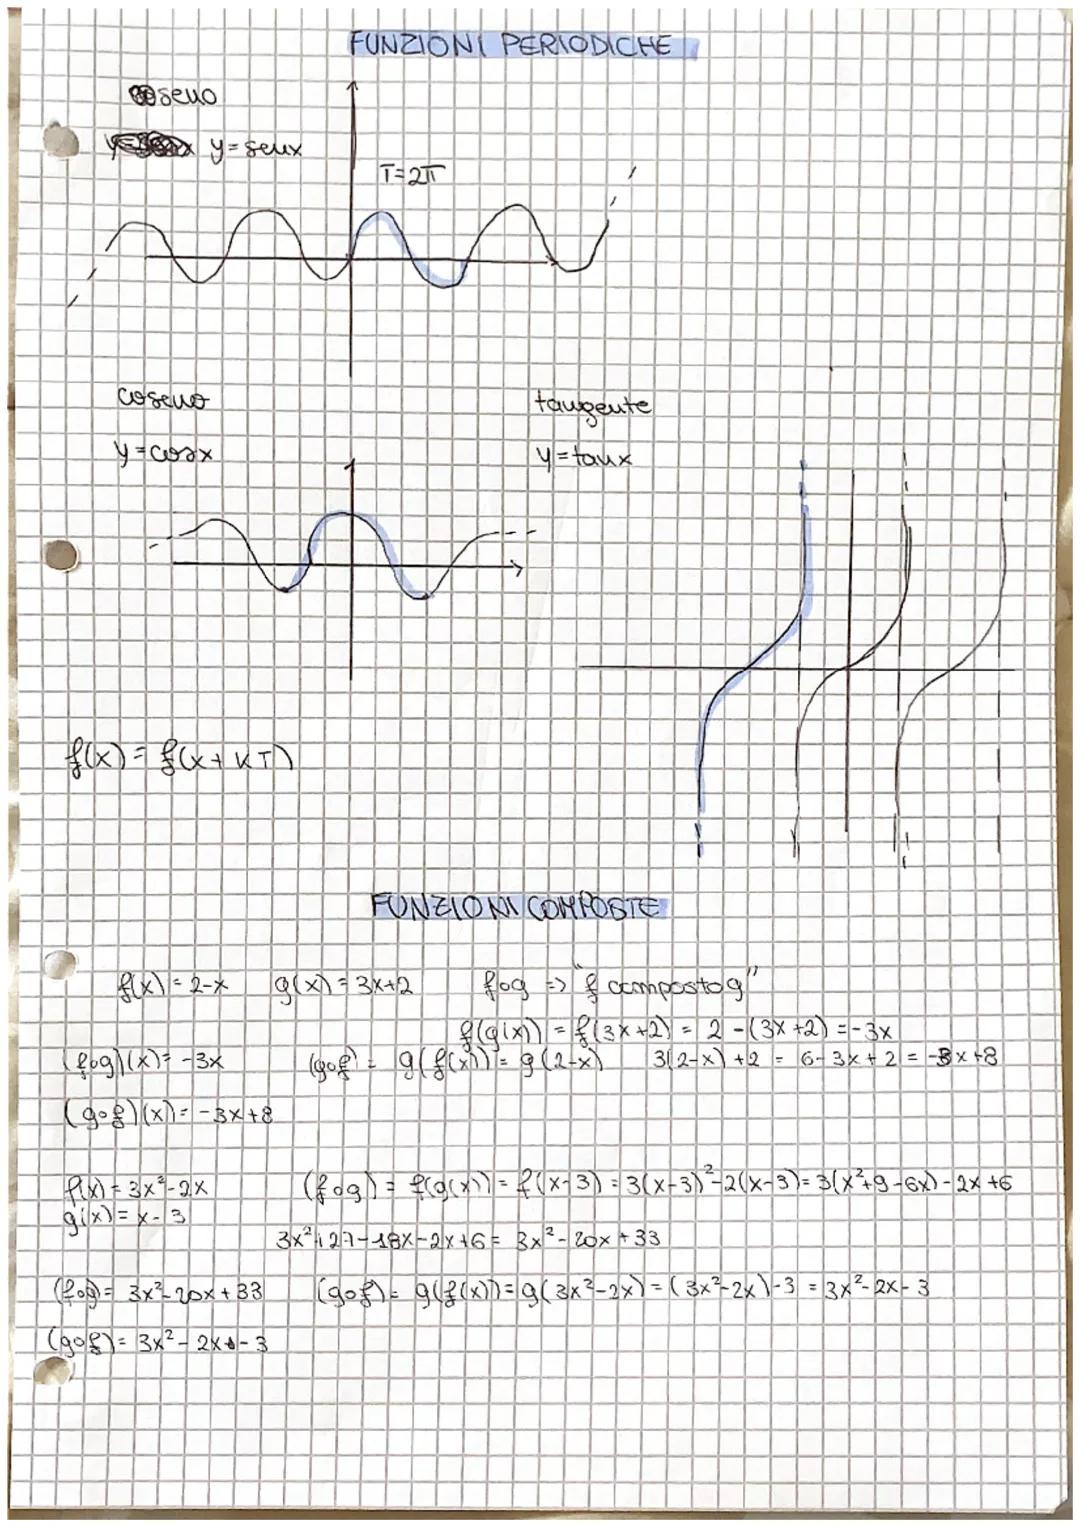 FUNZIONI PERIODICHE
seno
y=senx
T=2π
coseno
y=cosx
tangente
y=tanx
f(x)=f(x+KT)
FUNZIONI COMPOSTE
f(x)=2-x g(x)=3x+2 fog => "f composto g"
f(g(x)) = f(3x+2) = 2-(3x+2) = -3x
(fog)(x)= -3x (gof) = g(f(x)) = g(2-x) 3(2-x)+2 = 6-3x+2 = -3x+8
(gof)(x)= -3x+8
f(x)=3x²-2x (fog) = f(g(x)) = f(x-3) = 3(x-3)²-2(x-3) = 3(x²+9-6x)-2x+6
g(x)=x-3
3x²+27-18x-2x+6= 3x²-20x+33
(fog)= 3x²-20x+33 (gof)= g(f(x))=g(3x²-2x)=(3x²-2x)-3 = 3x²-2x-3
(gof)= 3x²-2x-3